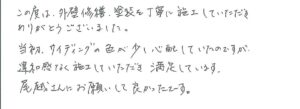 この度は、外壁修繕、塗装を丁寧に施工していただき
ありがとうございました。
当初、サイディングの色が少し心配していたのですが、
違和感なく施工していただき 満足しています。
尾越さんにお願いして良かったです。